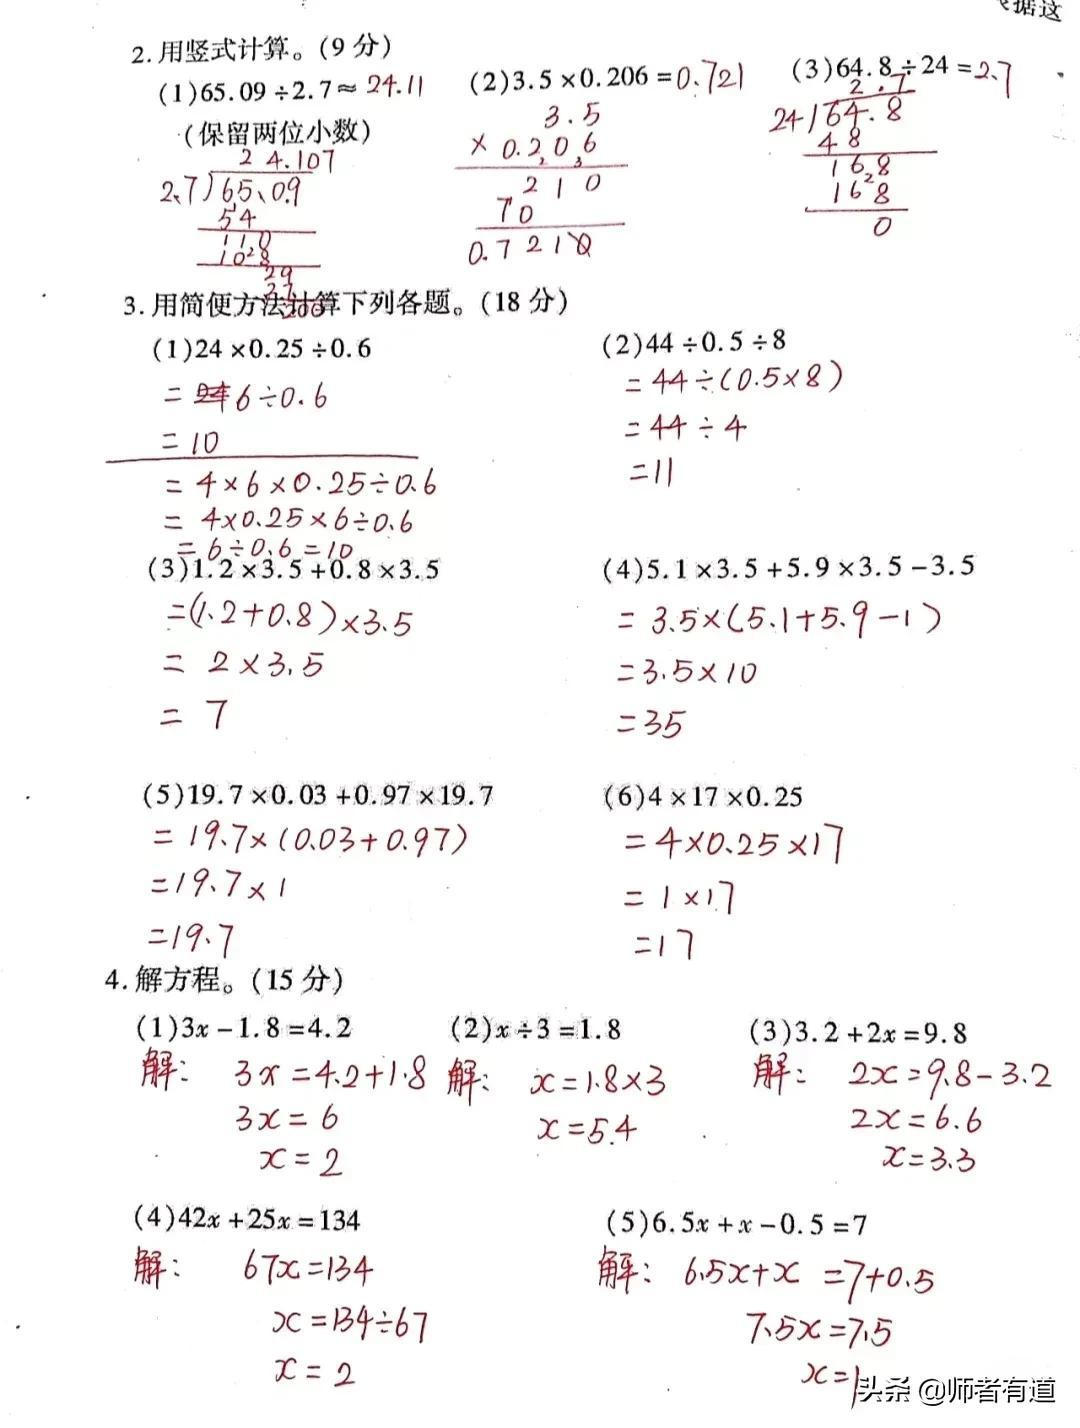 据这
2.用竖式计算。(9分)
(1)65.09÷2.7≈24.11
(2)3.5×0.206=0.721
(3)64.8÷24=2.7
(保留两位小数)
24.107
2.7)65.09
54
110
108
29
27
200
3.5
×0.206
210
70
0.7210
2.7
24)64.8
48
168
168
0
3.用简便方法计算下列各题。(18分)
(1)24×0.25÷0.6
=6÷0.6
=10
=4×6×0.25÷0.6
=4×0.25×6÷0.6
=6÷0.6=10
(2)44÷0.5÷8
=44÷(0.5×8)
=44÷4
=11
(3)1.2×3.5+0.8×3.5
=(1.2+0.8)×3.5
=2×3.5
=7
(4)5.1×3.5+5.9×3.5-3.5
=3.5×(5.1+5.9-1)
=3.5×10
=35
(5)19.7×0.03+0.97×19.7
=19.7×(0.03+0.97)
=19.7×1
=19.7
(6)4×17×0.25
=4×0.25×17
=1×17
=17
4.解方程。(15分)
(1)3x-1.8=4.2
解: 3x=4.2+1.8
3x=6
x=2
(2)x÷3=1.8
解: x=1.8×3
x=5.4
(3)3.2+2x=9.8
解: 2x=9.8-3.2
2x=6.6
x=3.3
(4)42x+25x=134
解: 67x=134
x=134÷67
x=2
(5)6.5x+x-0.5=7
解: 6.5x+x=7+0.5
7.5x=7.5
x=1
头条 @师者有道